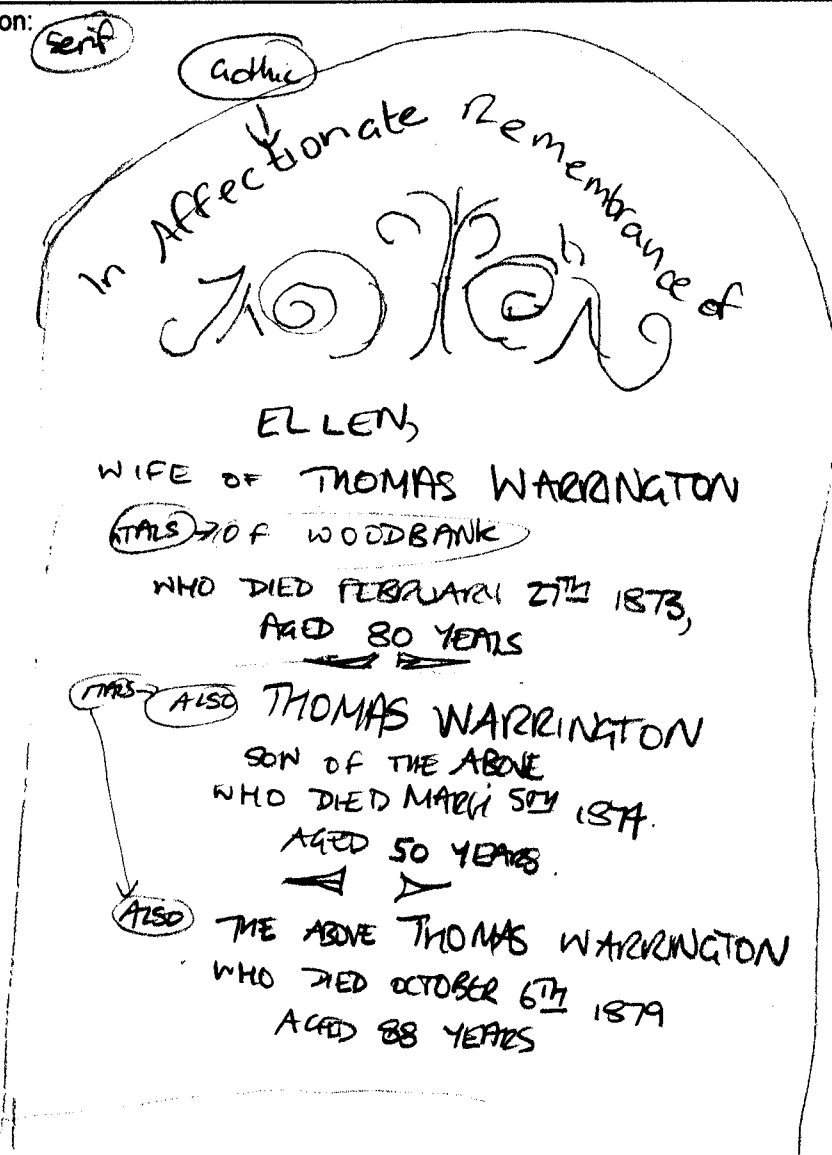 on:
Serif
Gothic
In Affectionate Remembrance of
ELLEN,
WIFE OF THOMAS WARRINGTON
ITALS OF WOODBANK
WHO DIED FEBRUARY 27TH 1873,
AGED 80 YEARS
ITALS ALSO THOMAS WARRINGTON
SON OF THE ABOVE
WHO DIED MARCH 5TH 1874.
AGED 50 YEARS.
ALSO THE ABOVE THOMAS WARRINGTON
WHO DIED OCTOBER 6TH 1879
AGED 88 YEARS